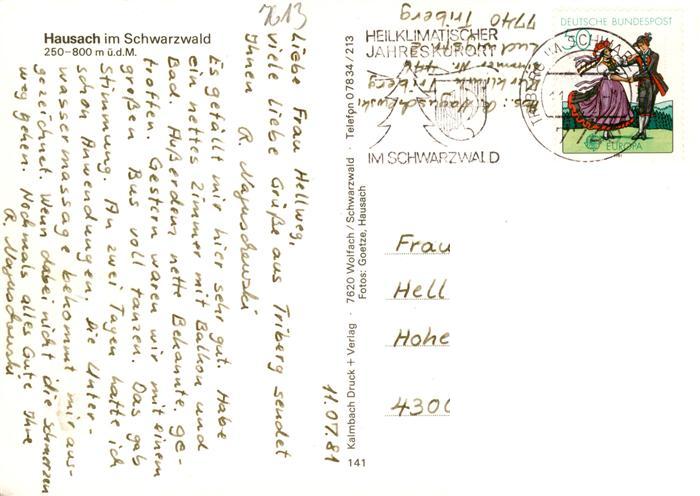 7613
Hausach im Schwarzwald
250-800 m ü.d.M.
Liebe Frau Hellweg,
viele liebe Grüße aus Triberg sendet
Ihnen R. Majuschewski
Es gefällt mir hier sehr gut. Habe
ein nettes Zimmer mit Balkon und
Bad. Außerdem nette Bekannte. ge-
troffen. Gestern waren wir mit einem
großen Bus voll tanzen. Das gab
Stimmung. An zwei Tagen hatte ich
schon Anwendungen. Die Unter-
wassermassage bekommt mir aus-
gezeichnet. Wenn dabei nicht die Schmerzen
weg gehen. Nochmals alles Gute Ihre
R. Majuschewski
11.07.81
Kalmbach Druck + Verlag · 7620 Wolfach / Schwarzwald · Telefon 07834 / 213
Fotos: Goetze, Hausach
141
Abs: R. Majuschewski
Triberg
Zimmer Nr.
7740 Triberg
HEILKLIMATISCHER
JAHRESKURORT
IM SCHWARZWALD
DEUTSCHE BUNDESPOST
50
EUROPA
1981
Frau
Hell
Hohe
4300